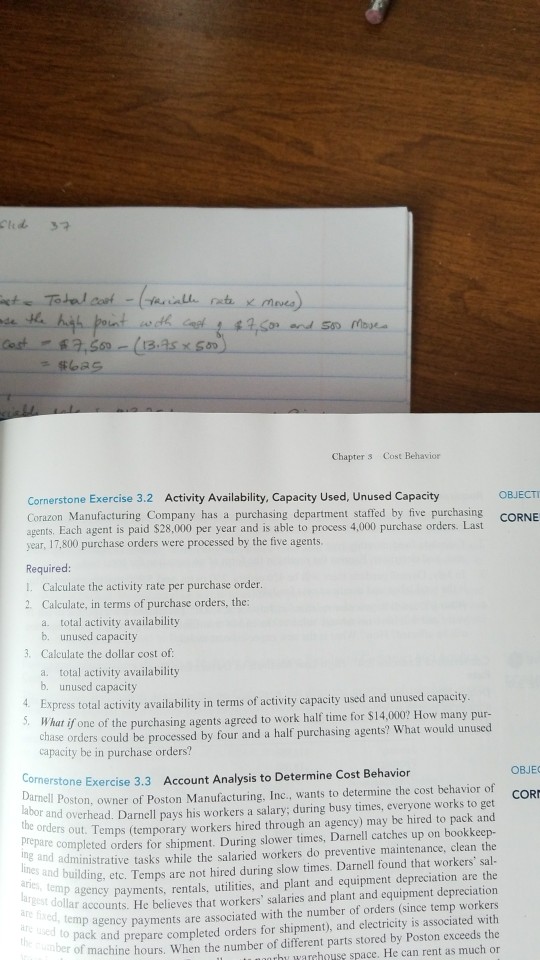 37
Total cost - (variable rate x moves)
the high point with cost of $7,500 and 500 moves
cost = $7,500 - (13.75 x 500)
= $625
Chapter 3 Cost Behavior
Cornerstone Exercise 3.2 Activity Availability, Capacity Used, Unused Capacity
OBJECTI
Corazon Manufacturing Company has a purchasing department staffed by five purchasing
CORNE
agents. Each agent is paid $28,000 per year and is able to process 4,000 purchase orders. Last
year, 17,800 purchase orders were processed by the five agents.
Required:
1. Calculate the activity rate per purchase order.
2. Calculate, in terms of purchase orders, the:
a. total activity availability
b. unused capacity
3. Calculate the dollar cost of:
a. total activity availability
b. unused capacity
4. Express total activity availability in terms of activity capacity used and unused capacity.
5. What if one of the purchasing agents agreed to work half time for $14,000? How many pur-
chase orders could be processed by four and a half purchasing agents? What would unused
capacity be in purchase orders?
Cornerstone Exercise 3.3 Account Analysis to Determine Cost Behavior
OBJEC
Darnell Poston, owner of Poston Manufacturing, Inc., wants to determine the cost behavior of
CORN
labor and overhead. Darnell pays his workers a salary; during busy times, everyone works to get
the orders out. Temps (temporary workers hired through an agency) may be hired to pack and
prepare completed orders for shipment. During slower times, Darnell catches up on bookkeep-
ing and administrative tasks while the salaried workers do preventive maintenance, clean the
lines and building, etc. Temps are not hired during slow times. Darnell found that workers' sal-
aries, temp agency payments, rentals, utilities, and plant and equipment depreciation are the
largest dollar accounts. He believes that workers' salaries and plant and equipment depreciation
are fixed, temp agency payments are associated with the number of orders (since temp workers
are used to pack and prepare completed orders for shipment), and electricity is associated with
the number of machine hours. When the number of different parts stored by Poston exceeds the
warehouse space. He can rent as much or